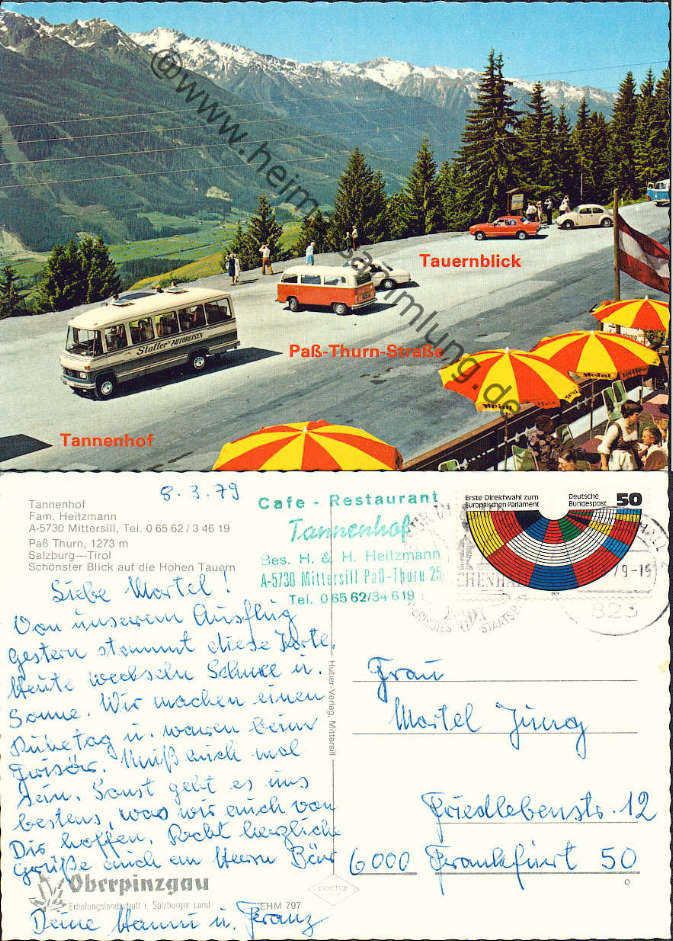 @www.heimatsammlung.de
Tauernblick
Paß-Thurn-Straße
Staller's
Tannenhof
8.3.79
Tannenhof
Fam. Heitzmann
A-5730 Mittersill, Tel. 0 65 62 / 3 46 19
Paß Thurn, 1273 m
Salzburg—Tirol
Schönster Blick auf die Hohen Tauern
Cafe - Restaurant
Tannenhof
Bes. H. & H. Heitzmann
A-5730 Mittersill Paß-Thurn 25
Tel. 0 65 62/34 6 19
Erste Direktwahl zum
Europäischen Parlament
Deutsche
Bundespost
50
823
Liebe Martel!
Von unserem Ausflug
gestern stammt diese Karte.
Heute wechseln Schnee u.
Sonne. Wir machen einen
Ruhetag u. waren beim
Frisör. Muß auch mal
sein. Sonst geht es uns
bestens, was wir auch von
Dir hoffen. Recht herzliche
Grüße auch an Herrn Bär
Deine Hanni u. Franz
Huber-Verlag, Mittersill
Frau
Martel Jung
Friedlebenstr. 12
6000 Frankfurt 50
Oberpinzgau
Erholungslandschaft i. Salzburger Land
EHM 797